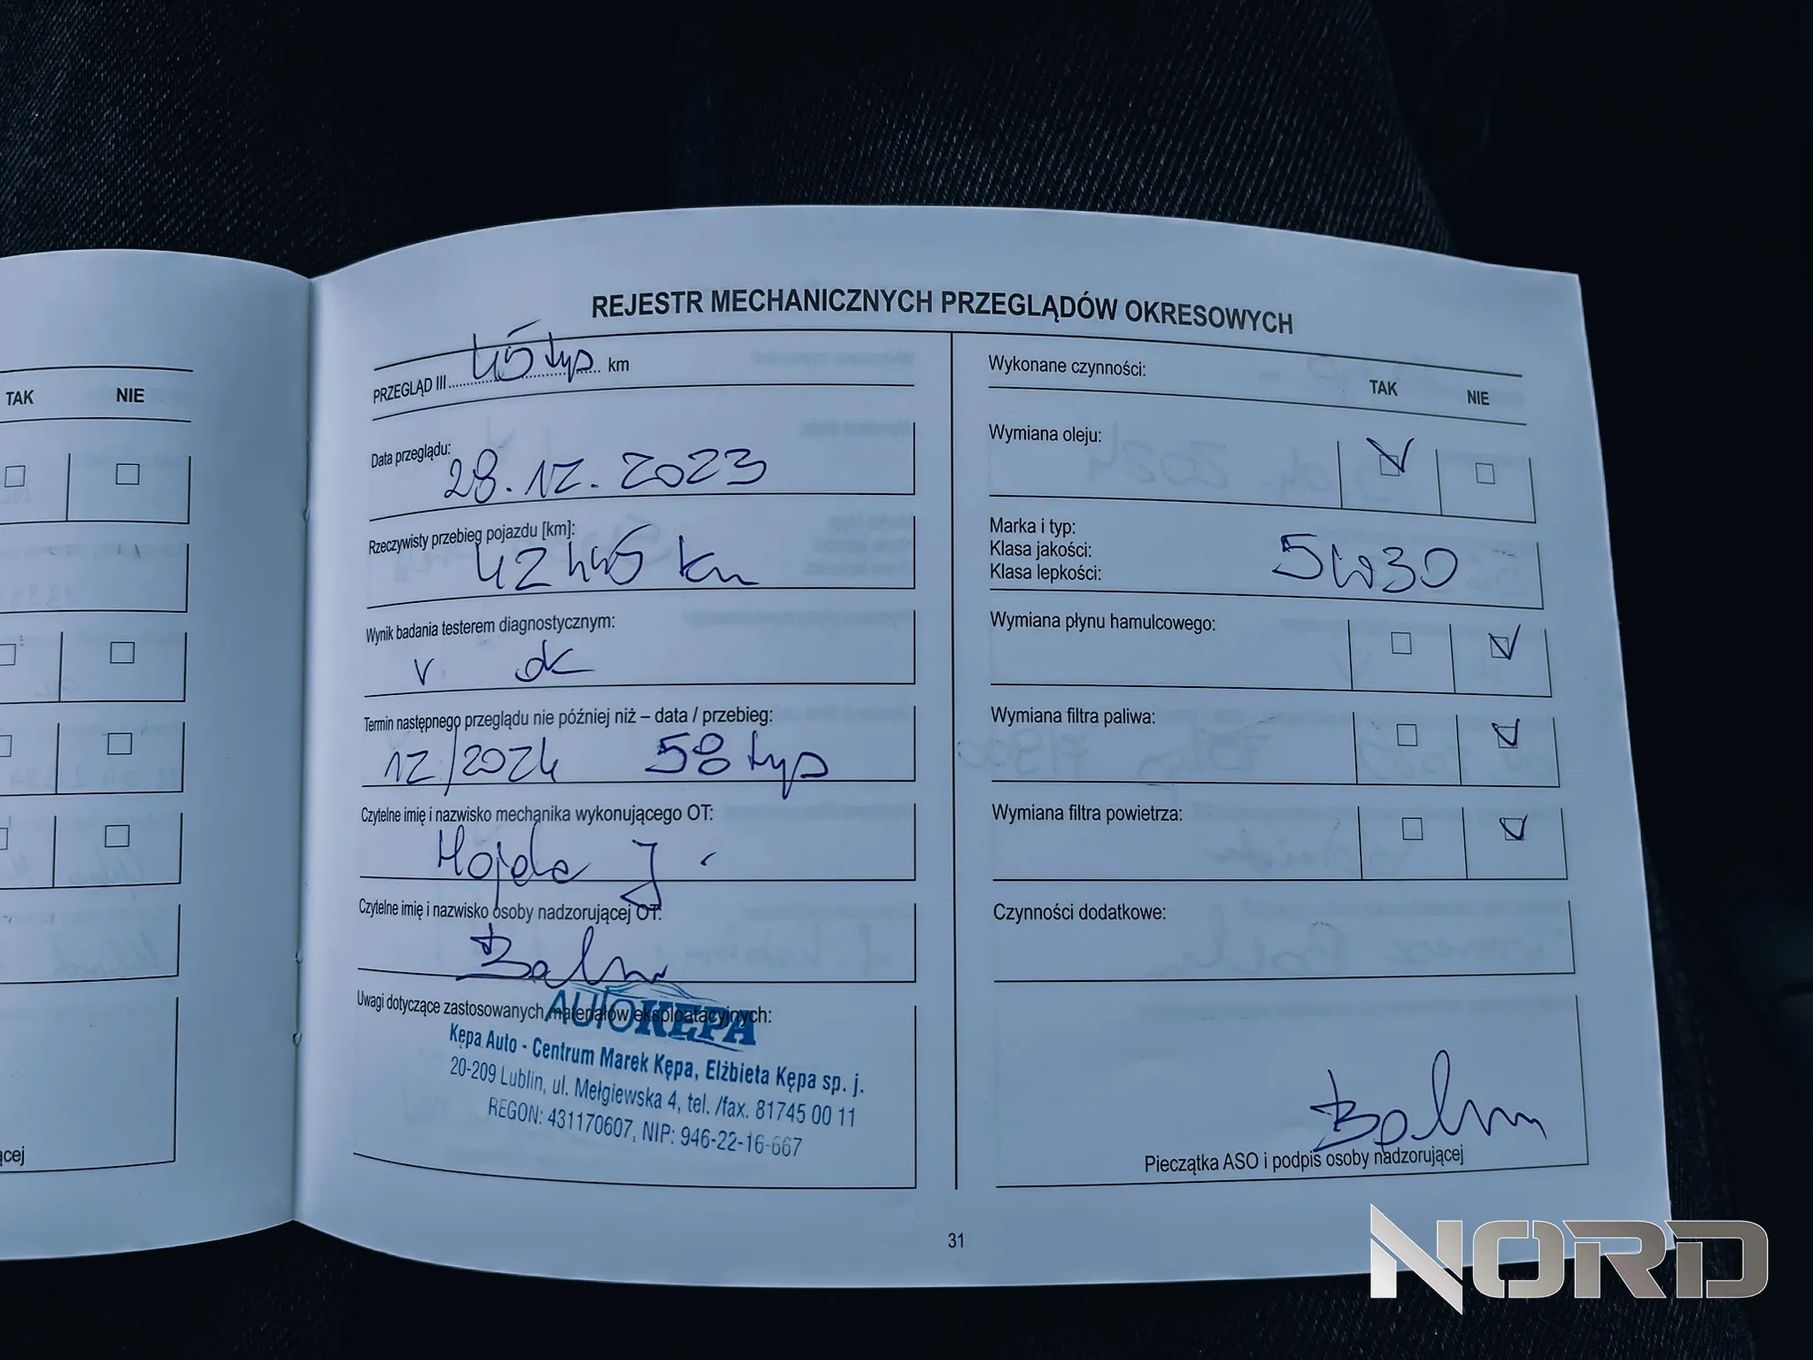 REJESTR MECHANICZNYCH PRZEGLĄDÓW OKRESOWYCH
TAK NIE
PRZEGLĄD III 45 tyś km
Data przeglądu:
28.12.2023
Rzeczywisty przebieg pojazdu [km]:
42 445 km
Wynik badania testerem diagnostycznym:
v ok
Termin następnego przeglądu nie później niż – data / przebieg:
12/2024 58 tyś
Czytelne imię i nazwisko mechanika wykonującego OT:
J
Czytelne imię i nazwisko osoby nadzorującej OT:
Uwagi dotyczące zastosowanych materiałów eksploatacyjnych:
AUTOKĘPA
Kępa Auto - Centrum Marek Kępa, Elżbieta Kępa sp. j.
20-209 Lublin, ul. Mełgiewska 4, tel. /fax. 81745 00 11
REGON: 431170607, NIP: 946-22-16-667
Wykonane czynności:
TAK NIE
Wymiana oleju:
Marka i typ:
Klasa jakości:
Klasa lepkości:
5W30
Wymiana płynu hamulcowego:
Wymiana filtra paliwa:
Wymiana filtra powietrza:
Czynności dodatkowe:
Pieczątka ASO i podpis osoby nadzorującej
31
NORD